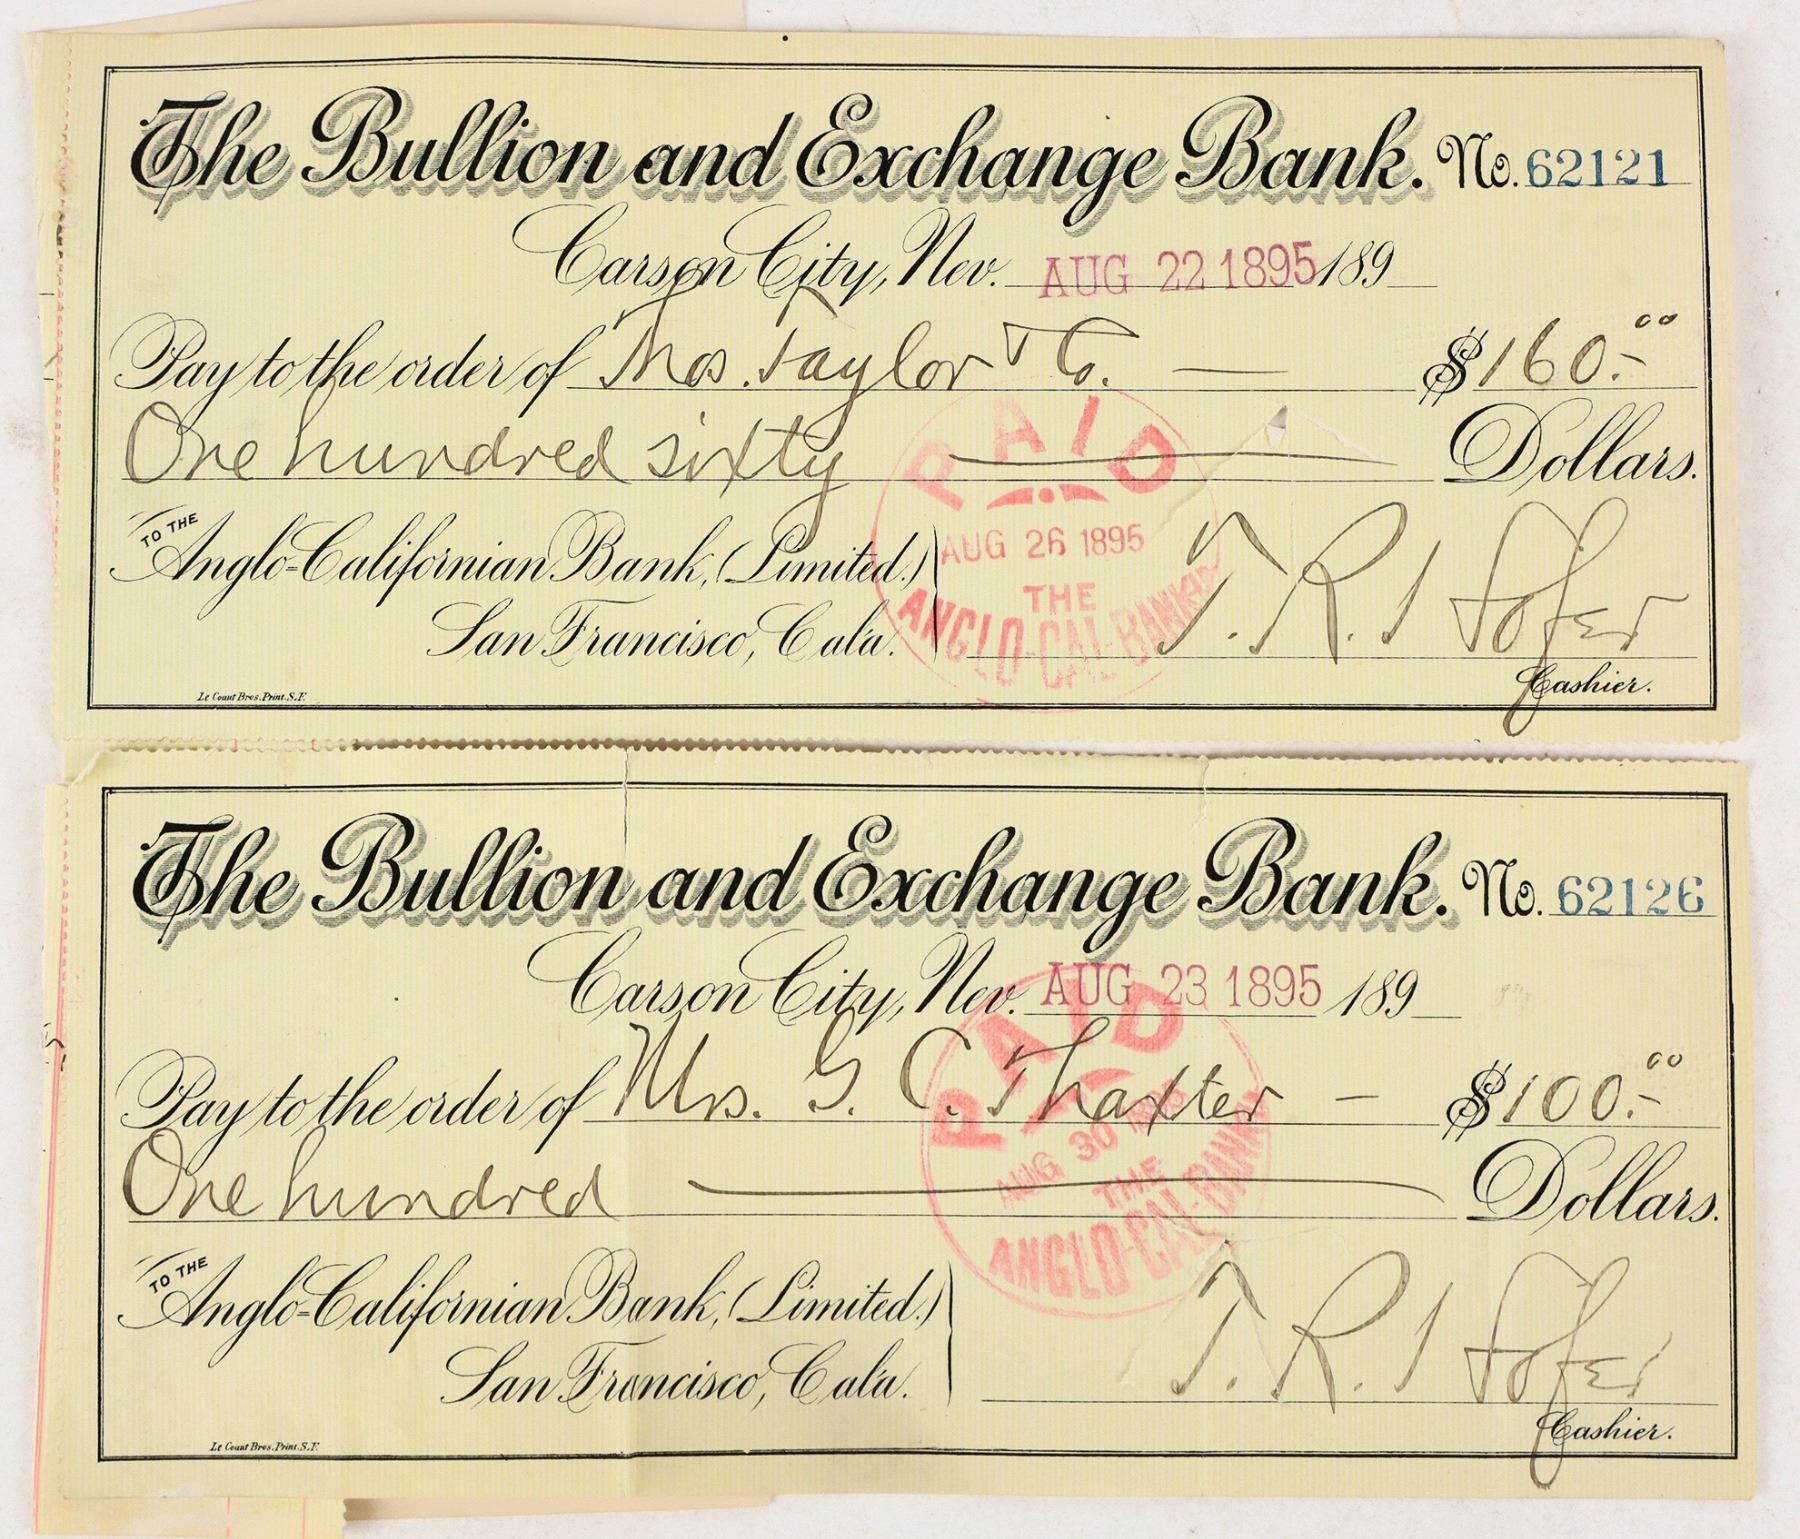 The Bullion and Exchange Bank. No. 62121
Carson City, Nev. AUG 22 1895 189
Pay to the order of Thos. Taylor & Co. — $160.00
One hundred sixty Dollars.
PAID
AUG 26 1895
THE
ANGLO-CAL-BANK
TO THE
Anglo-Californian Bank, (Limited.)
San Francisco, Cala.
T. R.
Cashier.
Le Count Bros. Print. S.F.
The Bullion and Exchange Bank. No. 62126
Carson City, Nev. AUG 23 1895 189
Pay to the order of Mrs. G. C. Thaxter — $100.00
One hundred Dollars.
PAID
AUG 30 1895
THE
ANGLO-CAL-BANK
TO THE
Anglo-Californian Bank, (Limited.)
San Francisco, Cala.
T. R.
Cashier.
Le Count Bros. Print. S.F.